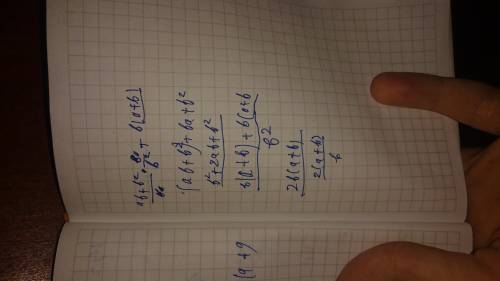 ab+b² 8a / b² + b(a+b)
(ab+b²)+ba+b²
b²+2ab+b²
b(a+b) + b(a+b / b²
2b(a+b)
2(a+b) / b
(a+g